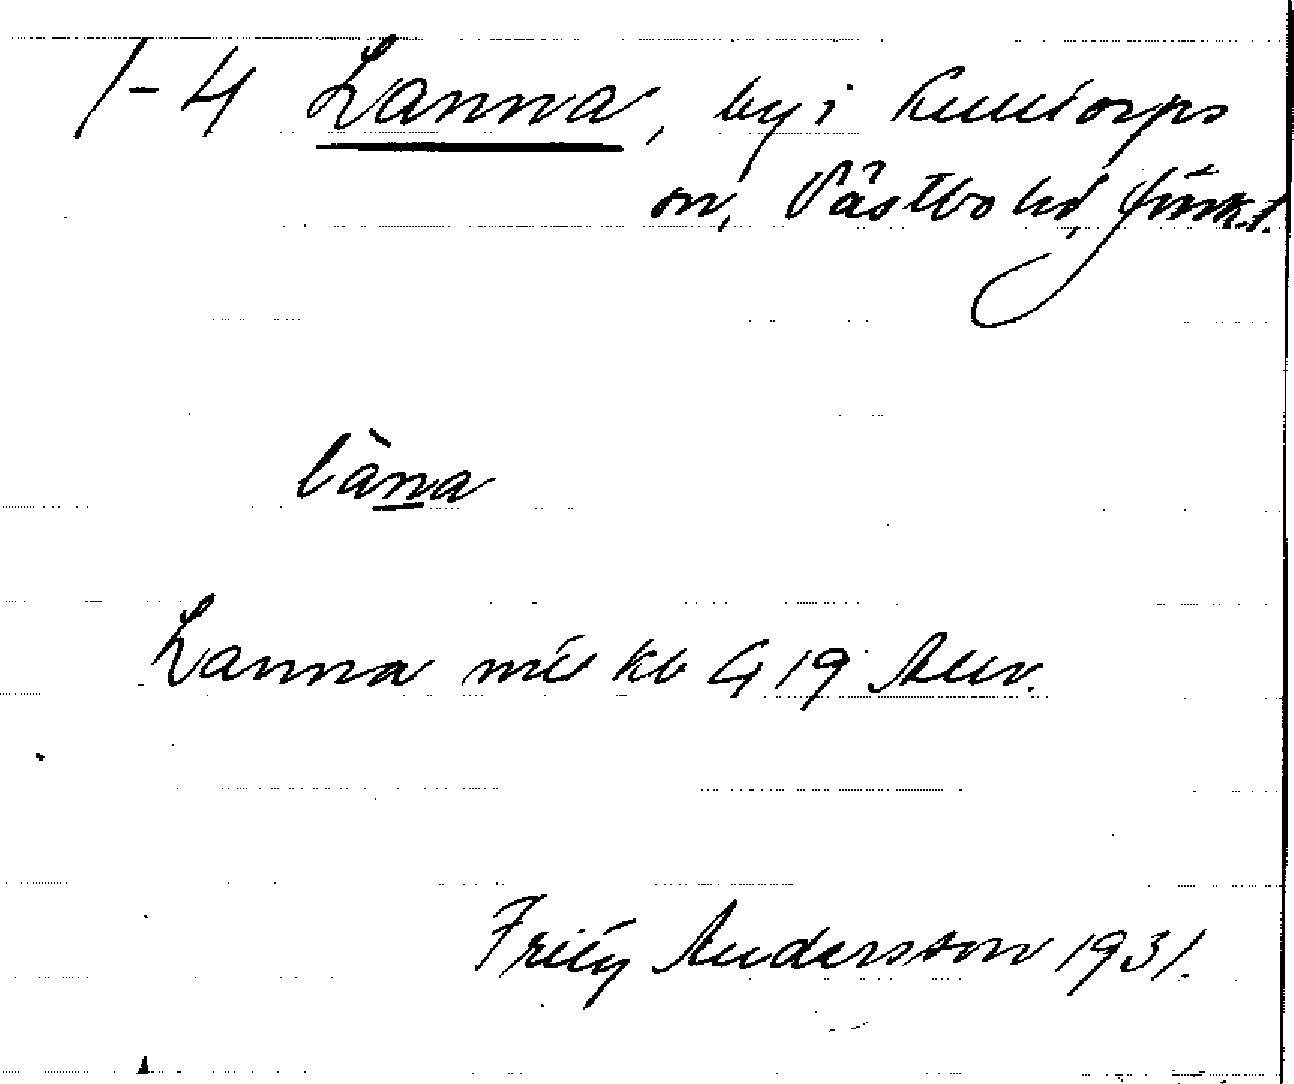 1-4 Lanna, by i Kulltorps
sn, Västbo hd, Jönk.l.
làna
Lanna mtl kb G 19 Allv.
Fritz Andersson 1931.